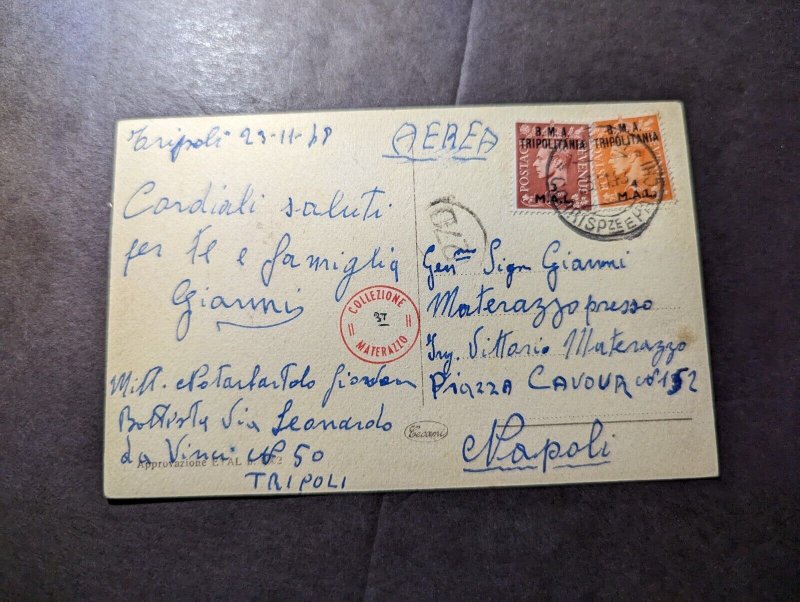 Tripoli 23-11-48
AEREA
Cordiali saluti
per te e famiglia
Gianni
B.M.A.
TRIPOLITANIA
POSTAGE
REVENUE
5
M.A.L.
B.M.A.
TRIPOLITANIA
4
M.A.L.
CORRISPZE E P
COLLEZIONE
MATERAZZO
Gen.mo Sign Gianni
Materazzo presso
Ing. Vittorio Materazzo
PIAZZA CAVOUR N° 152
Napoli
Mitt. Notarbartolo Giovan
Battista Via Leonardo
da Vinci N° 50
TRIPOLI
Approvazione
Tecami